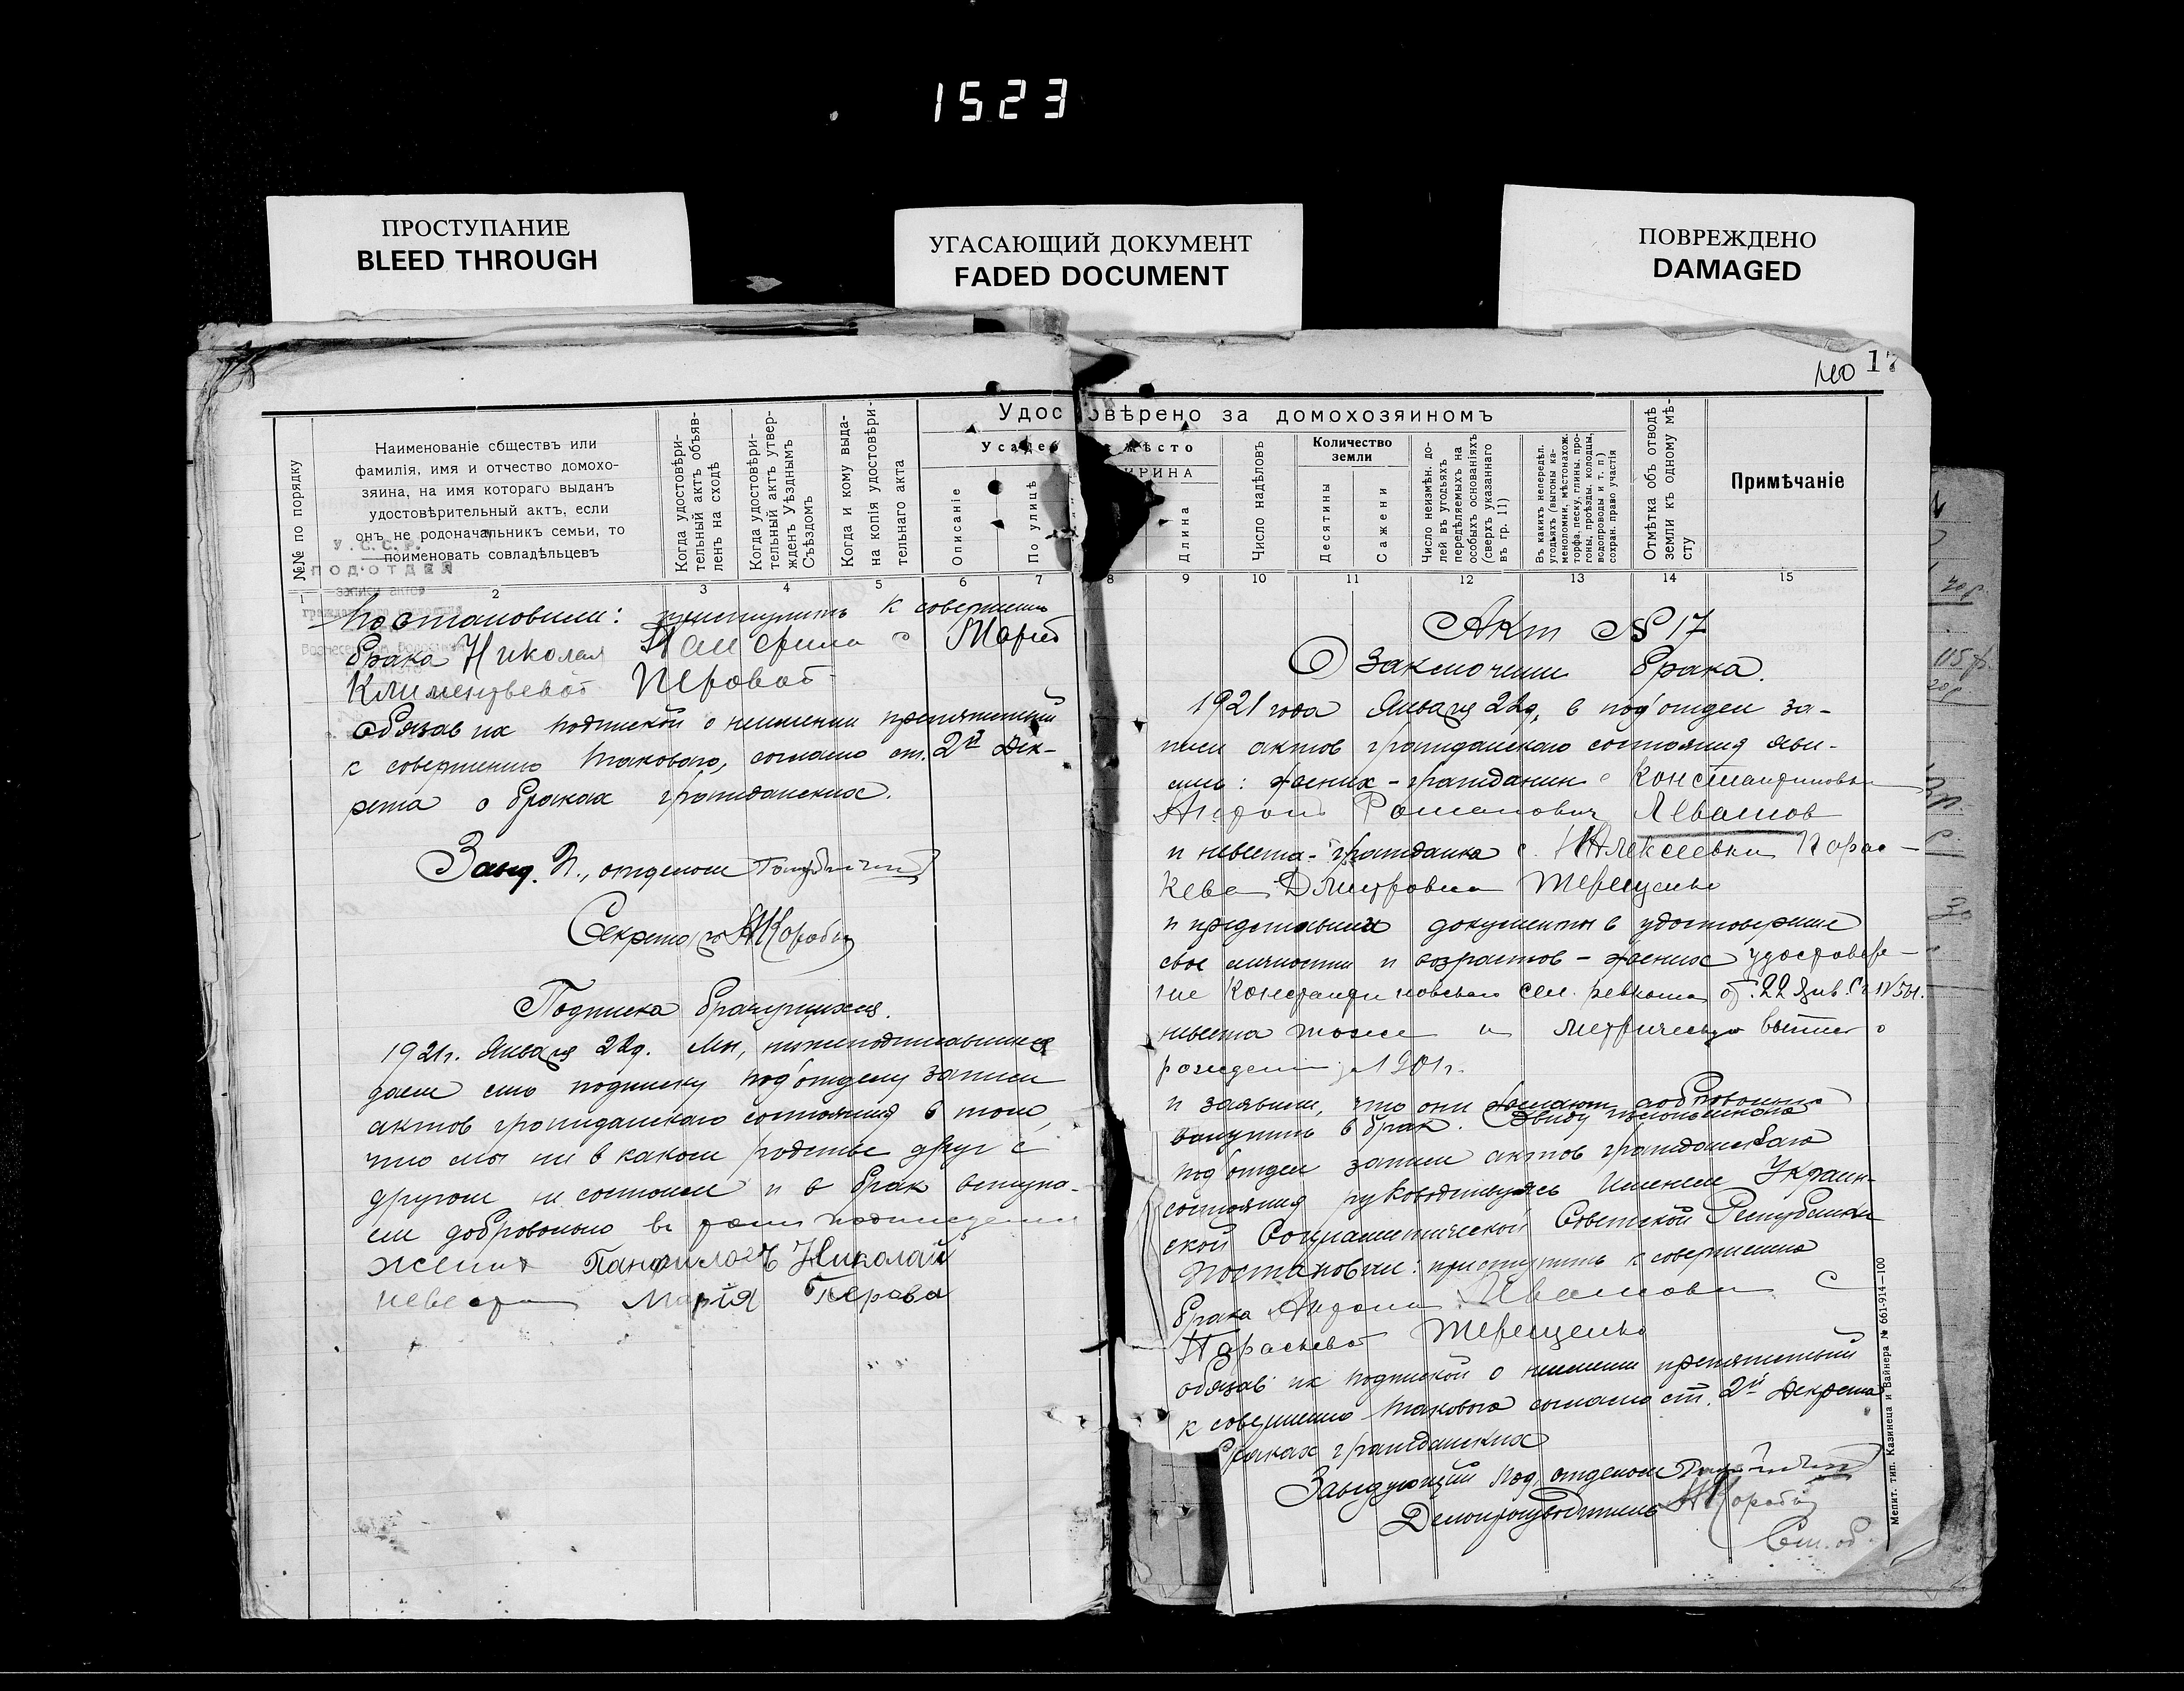 1523
ПРОСТУПАНИЕ
BLEED THROUGH
УГАСАЮЩИЙ ДОКУМЕНТ
FADED DOCUMENT
ПОВРЕЖДЕНО
DAMAGED
17
№№ по порядку
Наименованіе обществъ или
фамилія, имя и отчество домохо-
зяина, на имя котораго выданъ
удостовѣрительный актъ, если
онъ не родоначальникъ семьи, то
поименовать совладѣльцевъ
Когда удостовѣри-
тельный актъ объяв-
ленъ на сходѣ
Когда удостовѣри-
тельный актъ утвер-
жденъ Уѣзднымъ
Съѣздомъ
Когда и кому выда-
на копія удостовѣри-
тельнаго акта
Удос овѣрено за домохозяиномъ
Усадеб мѣсто
Описаніе
По улицѣ
РИНА
Длина
Число надѣловъ
Количество
земли
Десятины
Сажени
Число неизмѣн. до-
лей въ угодьяхъ
передѣляемыхъ на
особыхъ основаніяхъ
(сверхъ указаннаго
въ гр. 11)
Въ какихъ непередѣл.
угодьяхъ (выгоны ка-
меноломни, мѣстонахож.
торфа, песку, глины, про-
гоны, проѣзды, колодцы,
водопроводы и т. п.)
сохран. право участія
Отмѣтка объ отводѣ
земли къ одному мѣ-
сту
Примѣчаніе
1 2 3 4 5 6 7 8 9 10 11 12 13 14 15
У.С.С.Р.
ПОДОТДЕЛ
записи актов
гражданского состояния
Постановили: приступить к совершению
брака Николая с Марией
Климентьевой Перовой
обязав их подпиской о неимении препятствий
к совершению такового, согласно ст. 2й Дек-
рета о браках гражданских.
Завед. П., отделом
Секретарь
Подписка брачущихся.
1921г. Января 22д. Мы, нижеподписавшиеся
даем сию подписку под'отделу записи
актов гражданского состояния в том,
что мы ни в каком родстве друг с
другом не состоим и в брак вступа-
ем добровольно в чем подписуемся
жених Панфиловъ Николай
невеста Марія Перова
Акт №17
О заключении брака.
1921 года Января 22д, в под'отдел за-
писи актов гражданского состояния яви-
лись: жених-гражданин с Константиновки
Антон Романович Левашов
и невеста-гражданка с. Алексеевки Парас-
кева Дмитровна Терещенко
и представили документы в удостоверение
свое личности и возрастов - жених удостовере-
ние Константиновского сел. ревкома от 22 Янв. с/г №501.
невеста тоже и метрическую выпись о
рождении 1901г.
и заявили, что они желают добровольно
вступить в брак. Ввиду изложенного
под'отдел записи актов гражданского
состояния руководствуясь Именем Украин-
ской Социалистической Советской Республики
Постановил: приступить к совершению
брака Антона Левашова с
Параскевой Терещенко
обязав их подпиской о неимении препятствий
к совершению такового согласно ст. 2й Декрета
браках гражданских
Заведующий под'отделом
Делопроизводитель
Мелит. тип. Казинеца и Вайнера № 661-914—100